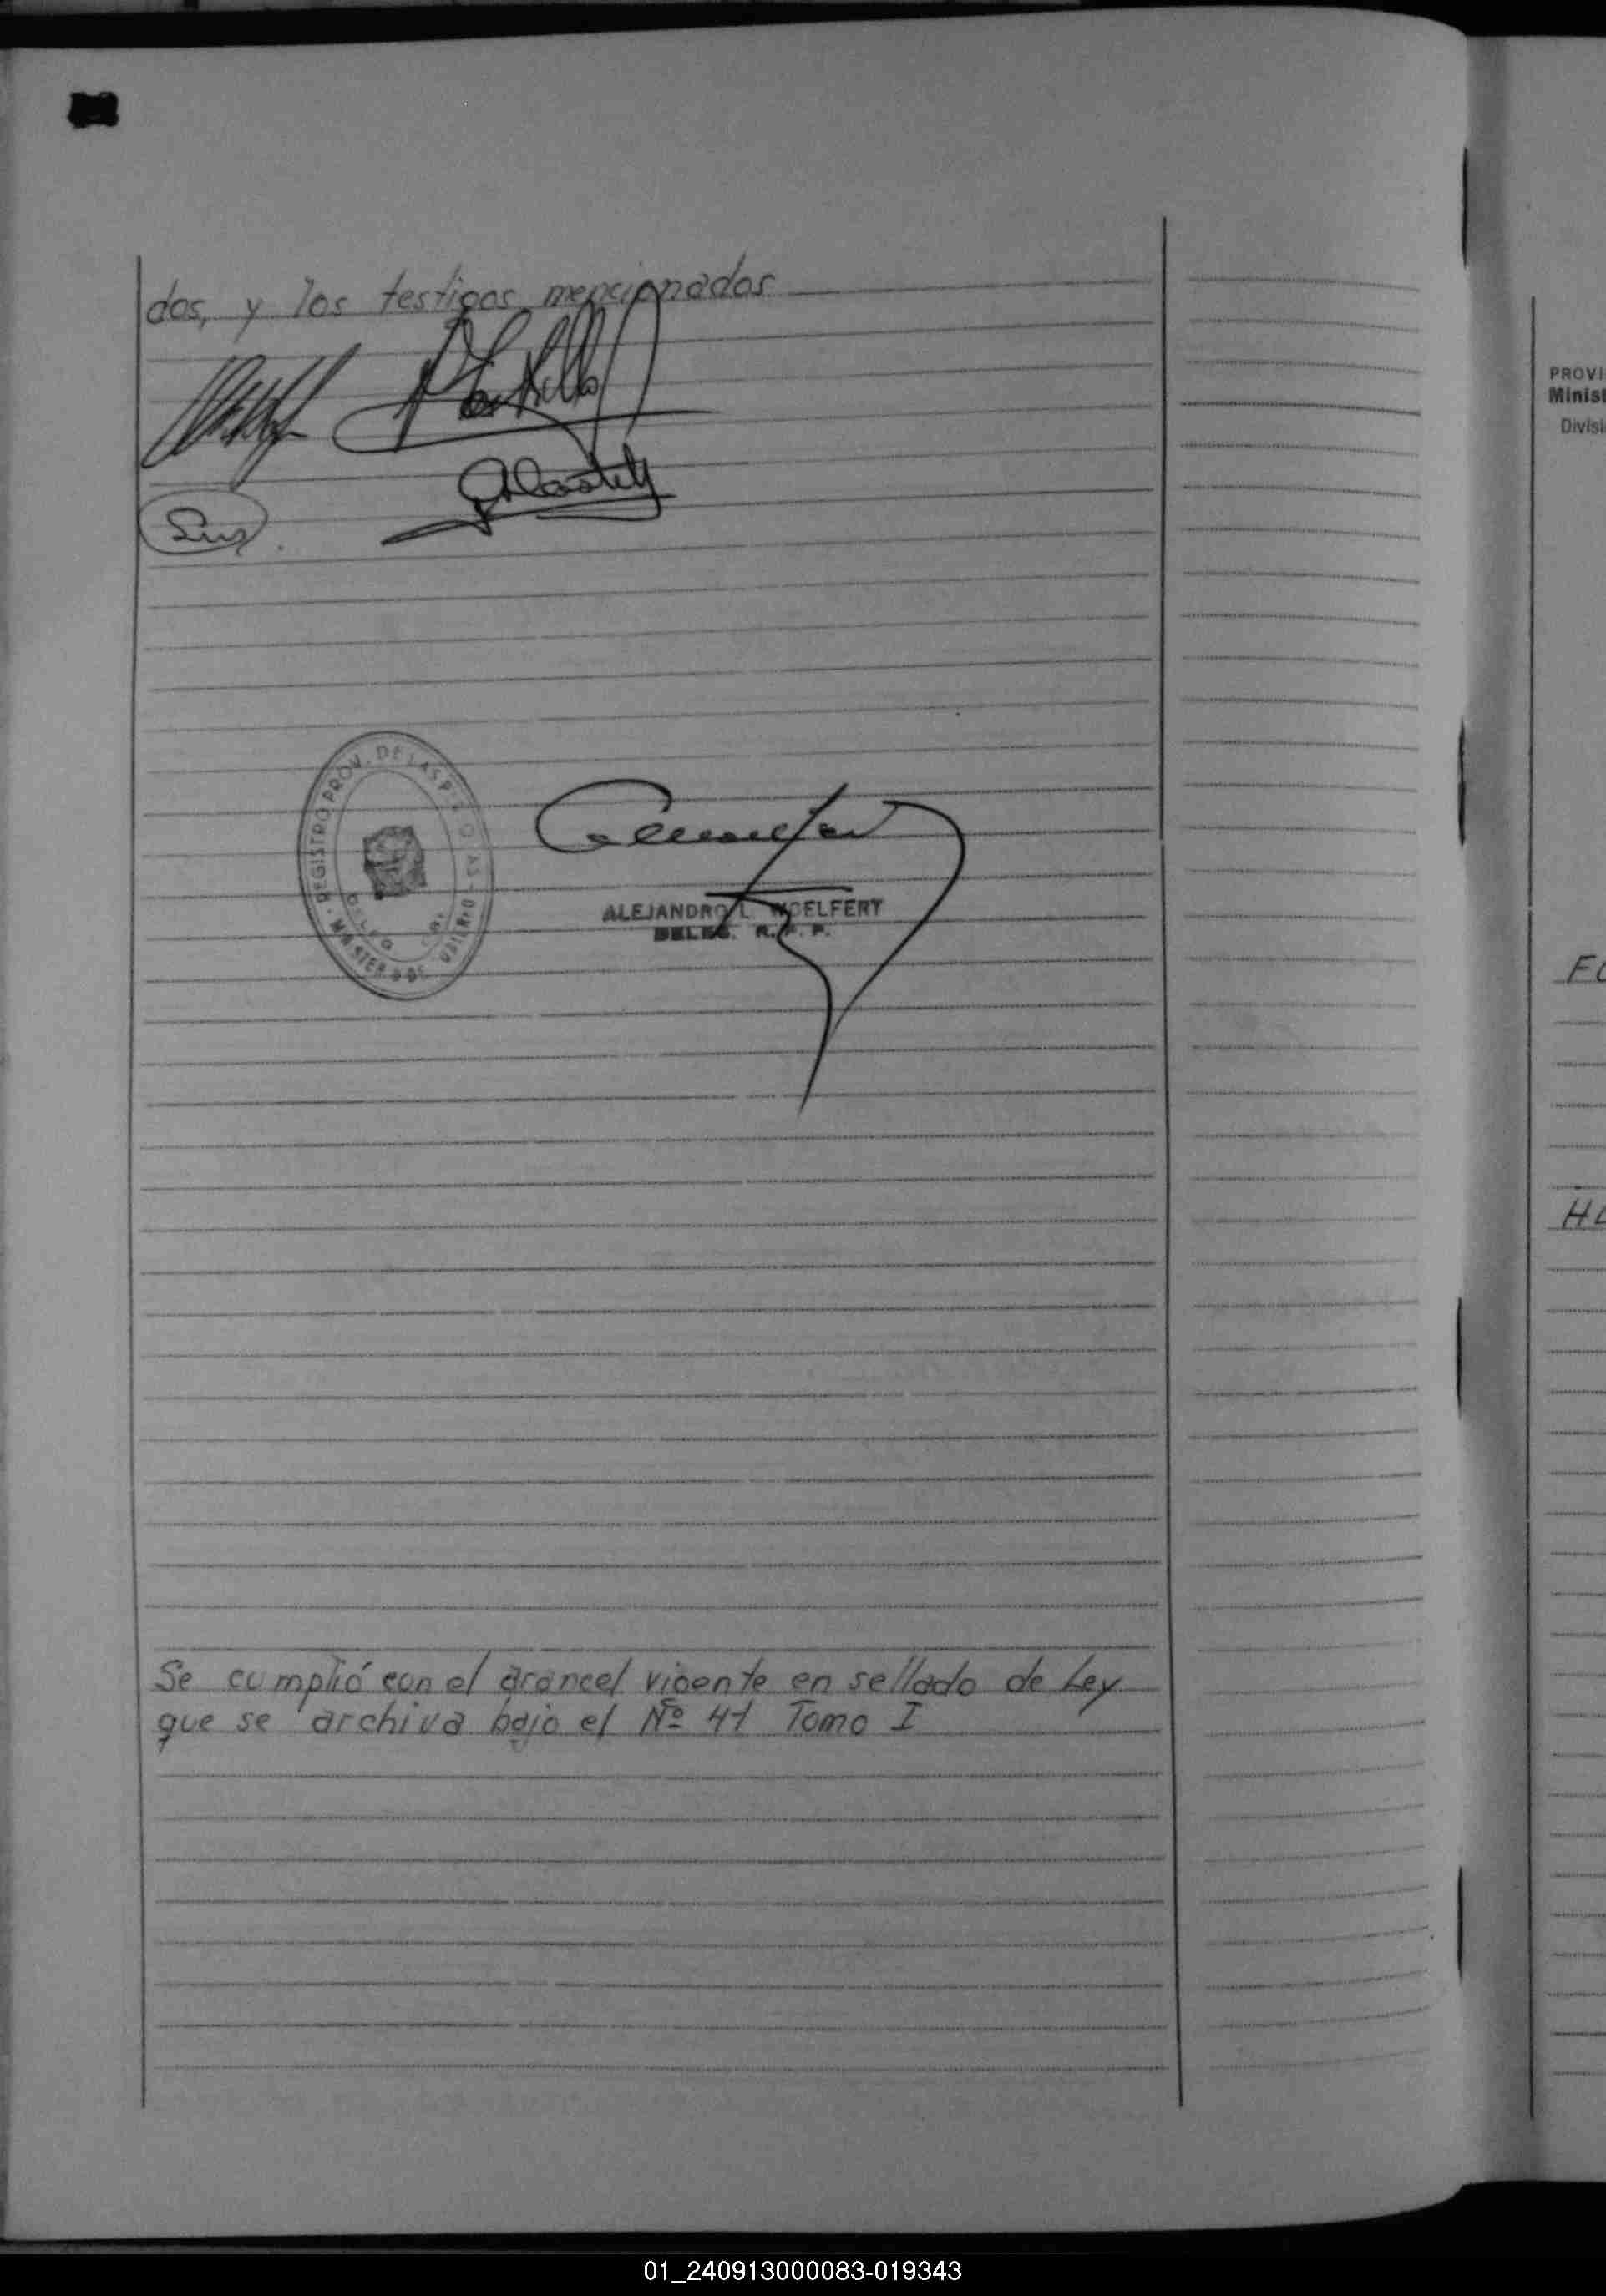 dos, y los testigos mencionados
REGISTRO PROV. DE LAS P
ALEJANDRO L. WOELFERT
DELEG. R. P. P.
Se cumplió con el arancel vigente en sellado de Ley
que se archiva bajo el Nº 41 Tomo I
PROVI
Minist
Divisi
01_240913000083-019343